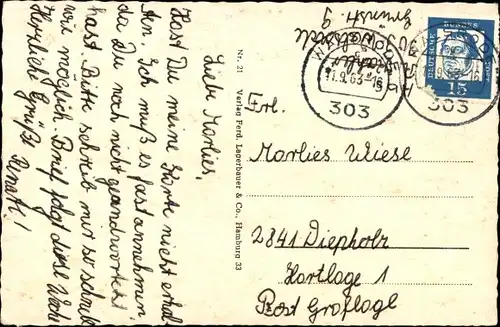 Liebe Marlies,
Hast Du meine Karte nicht erhal-
ten. Ich muß es fast annehmen
da Du noch nicht geandwortet
hast. Bitte schreib mir so schnell
wie möglich. Brief folgt diese Woche
Herzliche Grüße Renate!
Nr. 21 Verlag Ferd. Lagerbauer & Co., Hamburg 33
303
303
11.9.63-16
DEUTSCHE BUNDESPOST
15
Frl.
Marlies Wiese
2841 Diepholz
Hartlage 1
Post Groflage
303 Walsrode